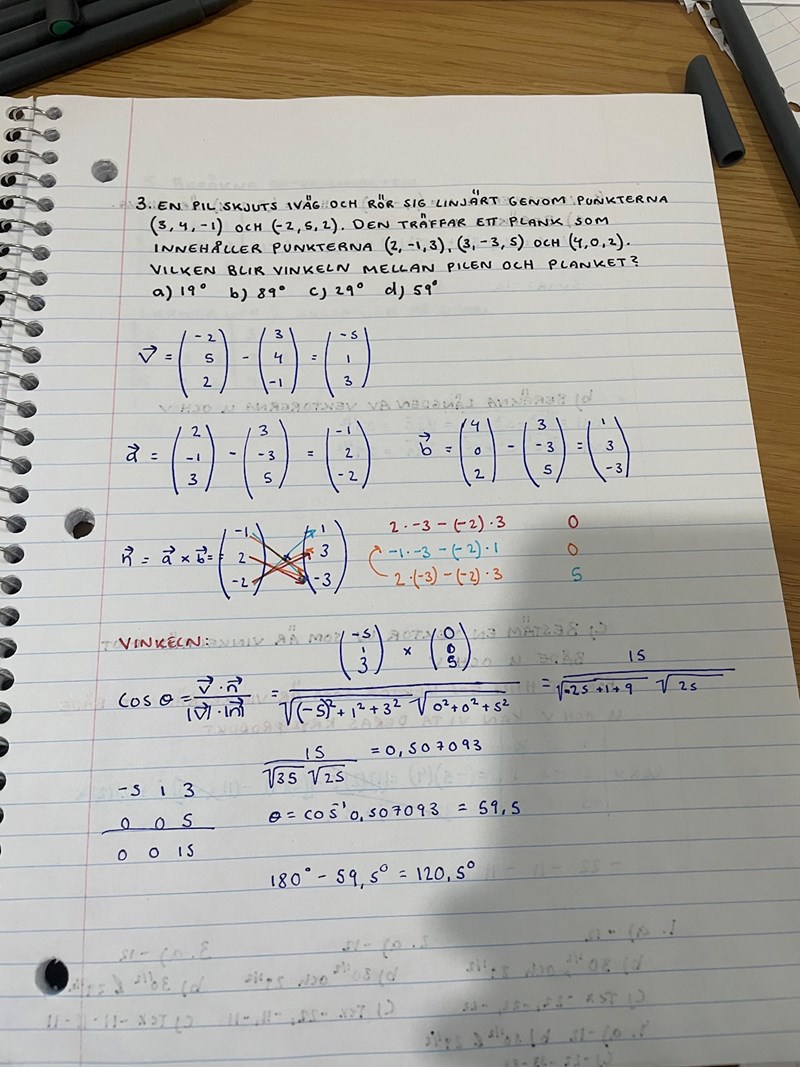 3. EN PIL SKJUTS IVÄG OCH RÖR SIG LINJÄRT GENOM PUNKTERNA
(3,4,-1) OCH (-2,5,2). DEN TRÄFFAR ETT PLANK SOM
INNEHÅLLER PUNKTERNA (2,-1,3), (3,-3,5) OCH (4,0,2).
VILKEN BLIR VINKELN MELLAN PILEN OCH PLANKET?
a) 19° b) 89° c) 29° d) 59°
v⃗ = (-2 5 2) - (3 4 -1) = (-5 1 3)
a⃗ = (2 -1 3) - (3 -3 5) = (-1 2 -2) b⃗ = (4 0 2) - (3 -3 5) = (1 3 -3)
n⃗ = a⃗ × b⃗ = (-1 2 -2) (1 3 -3)
2·-3 - (-2)·3 0
-1·-3 - (-2)·1 0
2·(-3) - (-2)·3 5
VINKELN: (-5 1 3) × (0 0 5)
cos θ = v⃗·n⃗ / |v⃗|·|n⃗| = / √(-5)²+1²+3² √0²+0²+5² = 15 / √-25+1+9 √25
15 / √35 √25 = 0,507093
-5 1 3
0 0 5
0 0 15
θ = cos⁻¹ 0,507093 = 59,5
180° - 59,5° = 120,5°